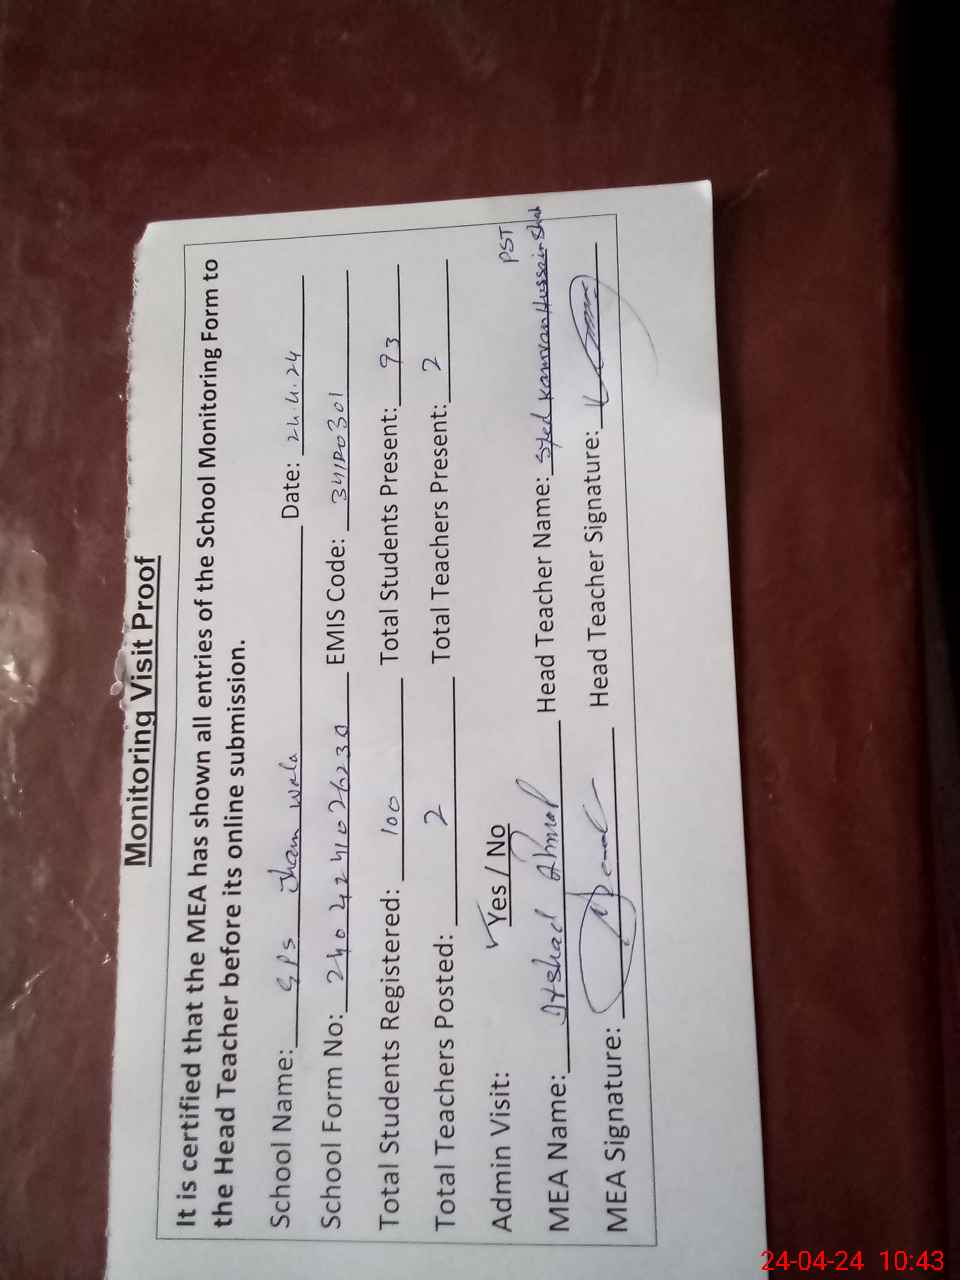 Monitoring Visit Proof
It is certified that the MEA has shown all entries of the School Monitoring Form to
the Head Teacher before its online submission.
School Name: GPS Jham Wala Date: 24.4.24
School Form No: EMIS Code:
Total Students Registered: 100 Total Students Present: 93
Total Teachers Posted: 2 Total Teachers Present: 2
Admin Visit: Yes / No PST
MEA Name: Irshad Ahmad Head Teacher Name: Syed Kamran Hussain Shah
MEA Signature: Head Teacher Signature:
24-04-24 10:43